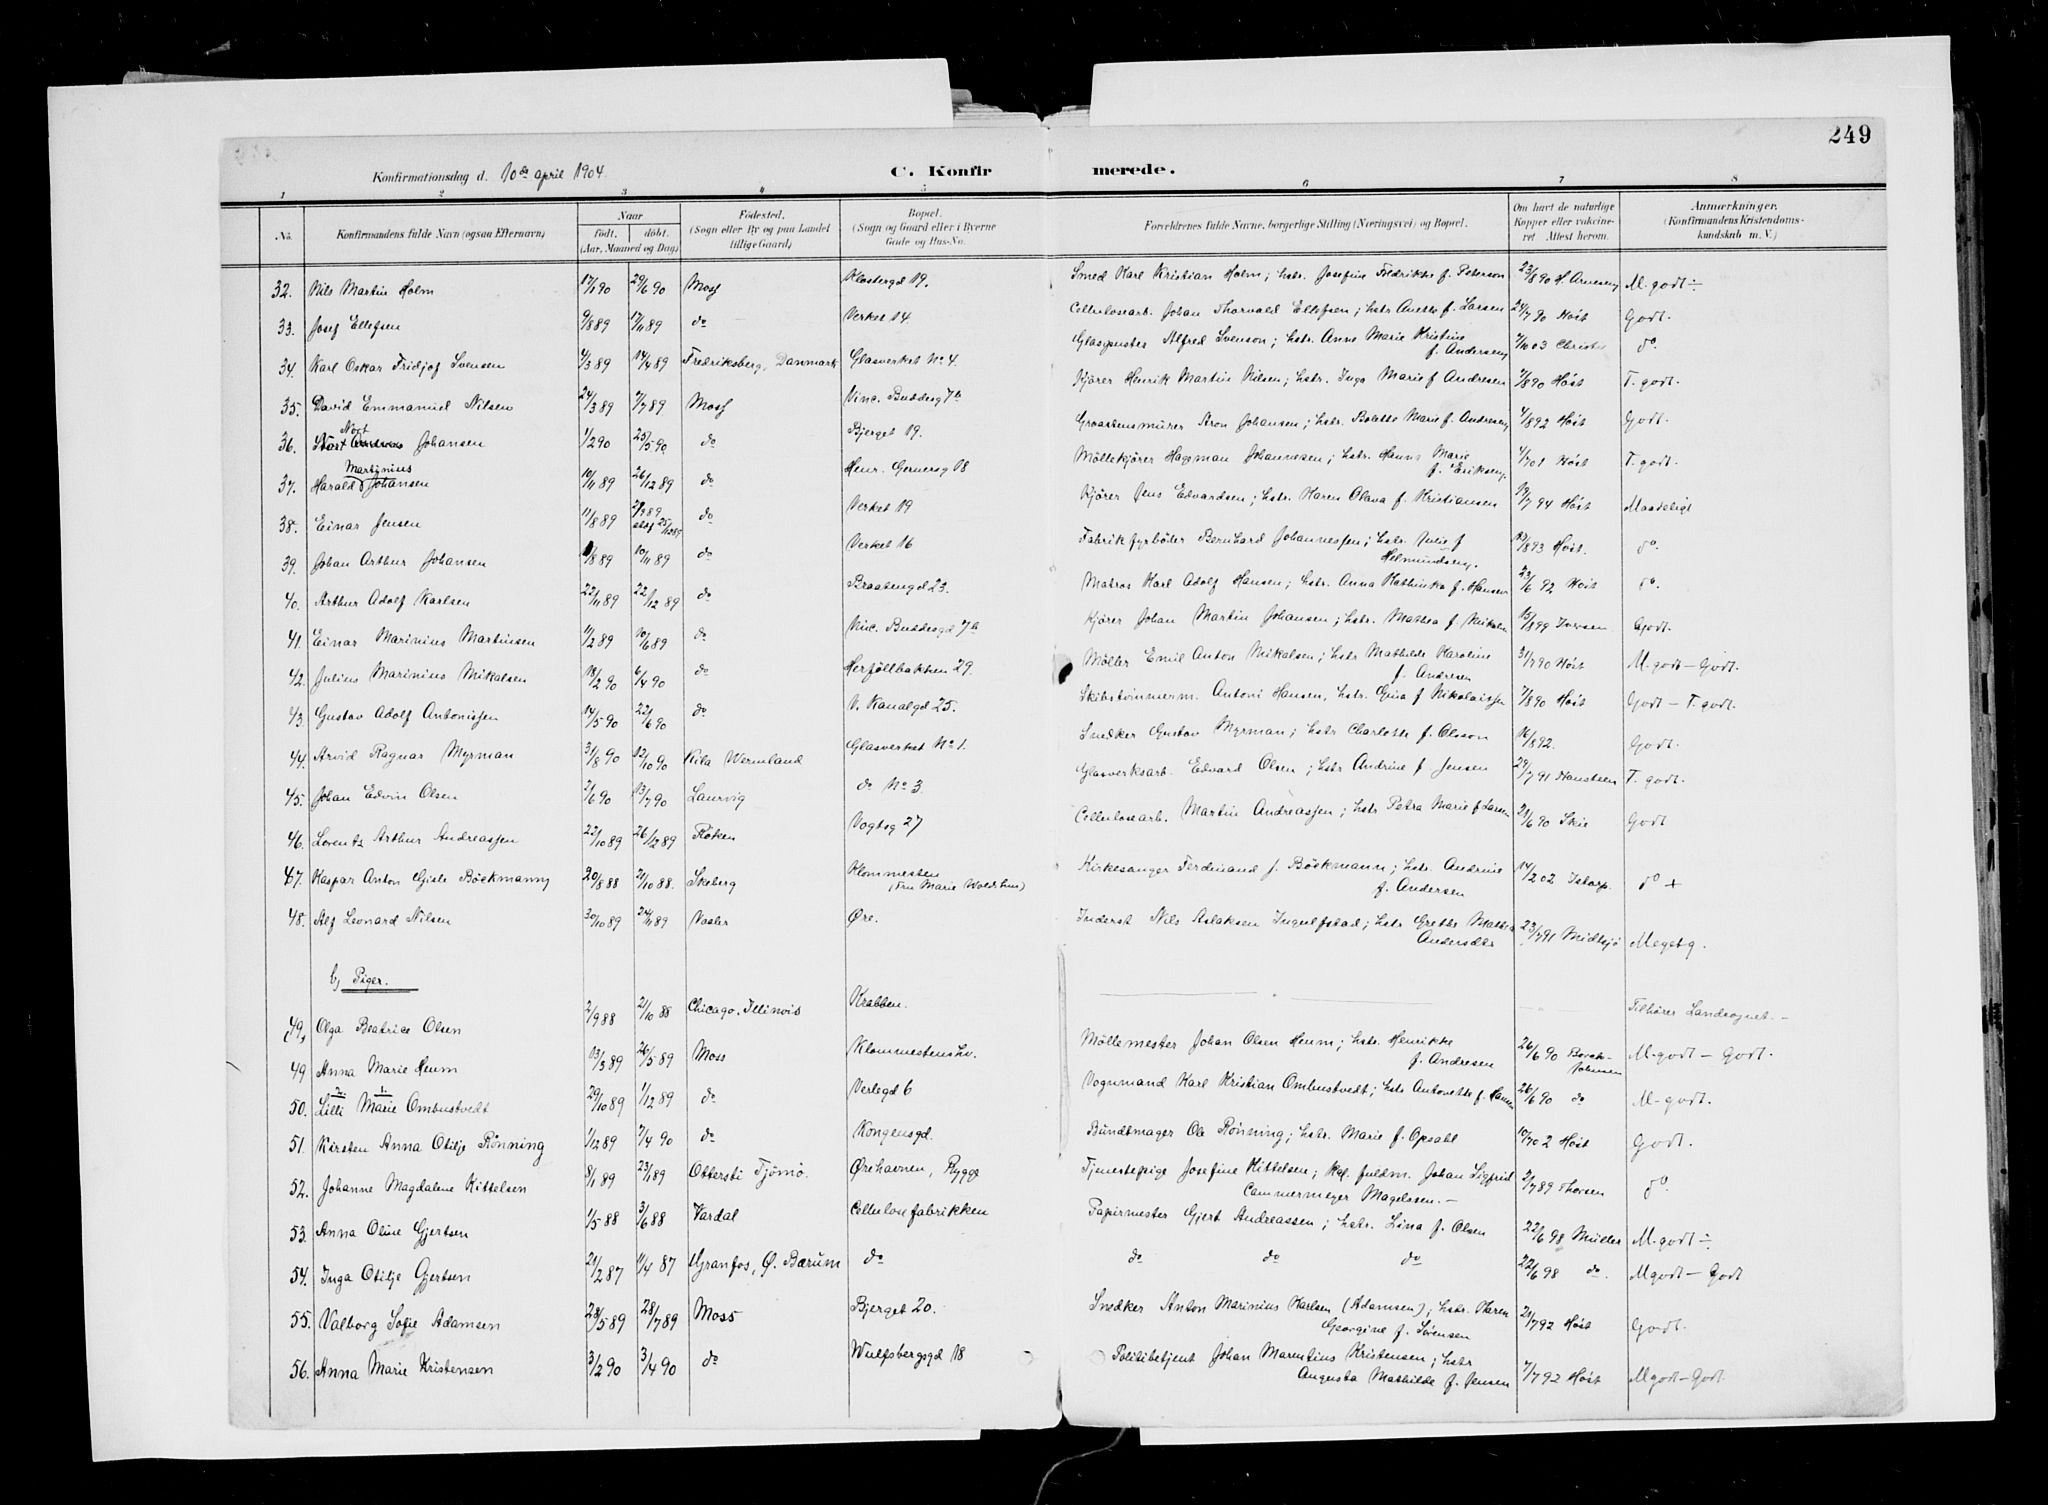 249
Konfirmationsdag d. 10de april 1904.
C. Konfirmerede.
1 2 3 4 5 6 7 8
No. | Konfirmandens fulde Navn (ogsaa Efternavn) | Naar født. døbt. (Aar, Maaned og Dag) | Fødested. (Sogn eller By og paa Landet tillige Gaard) | Bopæl. (Sogn og Gaard eller i Byerne Gade og Hus-No. | Forældrenes fulde Navne, borgerlige Stilling (Næringsvei) og Bopæl. | Om havt de naturlige Kopper eller vakcineret Attest herom. | Anmærkninger. (Konfirmandens Kristendomskundskab m. V.)
32. Nils Martin Holm | 17/1 90 | 29/6 90 | Moss | Klostergd 19. | Smed Karl Kristian Holm; hstr. Josefine Fredrikke f. Peterson | 23/8 90 H. Arnesen | M. godt ÷
33. Josef Ellefsen | 9/8 89 | 17/11 89 | do | Verket 14. | Cellulosearb. Johan Thorvald Ellefsen; hstr Anette f. Larsen | 24/7 90 Høst | Godt.
34. Karl Oskar Fridjof Svensen | 4/3 89 | 14/4 89 | Fredriksberg, Danmark | Glasverket No. 4. | Glaspuster Alfred Svenson; hstr. Anne Marie Kristine f. Andersen | 7/10 03 | do.
35. David Emmanuel Nilsen | 24/3 89 | 7/7 89 | Moss | Vinc. Buddesg 7b | Kjører Henrik Martin Nilsen; hstr. Inga Marie f Andresen | 7/8 90 Høst | T. godt.
36. Nort Johansen | 1/2 90 | 25/5 90 | do | Bjerget 19. | Graastensmurer Aron Johansen; hstr. Bolette Marie f. Andresen | 4/8 92 Høst | Godt.
37. Harald Martinius Johansen | 10/11 89 | 26/12 89 | do | Henr. Gernersg 18 | Møllekjører Hagman Johannesen; hstr. Hanna Marie f. Eriksen. | 4/7 01 Høst | T. godt.
38. Einar Jensen | 11/8 89 | 2/9 89 25/12 89 | do | Verket 19 | Kjører Jens Edvardsen; hstr. Karen Olava f. Kristiansen | 19/7 94 Høst | Maadeligt
39. Johan Arthur Johansen | /8 89 | 10/11 89 | do | Verket 16 | Fabrikfyrbøter Bernhard Johannessen; hstr. Julie f Helmundsen. | 12/8 93 Høst. | do.
40. Arthur Adolf Karlsen | 22/11 89 | 22/12 89 | do | Braatengd 23. | Matros Karl Adolf Hansen; hstr. Anna Kathinka f. Hansen | 23/6 92 Høst | do.
41. Einar Marinius Martinsen | 11/2 89 | 10/6 89 | do | Vinc. Buddesgd 7b | Kjører Johan Martin Johansen; hstr. Mathea f. | 15/8 99 Iversen | Godt.
42. Julius Marinius Mikalsen | 13/2 90 | 6/4 90 | do | Herføllbakken 29. | Møller Emil Anton Mikalsen; hstr Mathilde Karoline f. Andresen | 31/7 90 Høst | M. godt – Godt.
43. Gustav Adolf Antonissen | 14/5 90 | 22/6 90 | do | V. Kanalgd 25. | Skibstømmerm. Antoni Hansen, hstr. Gina f Nikolaissen | 7/8 90 Høst | Godt – T. godt.
44. Arvid Ragnar Myrman | 31/8 90 | 12/10 90 | Kila Wermland | Glasverket No. 1. | Snedker Gustav Myrman; hstr Charlotte f. Olsson | 16/8 92. | Godt.
45. Johan Edvin Olsen | 2/6 90 | 13/7 90 | Laurvig | do No. 3. | Glasverksarb. Edvard Olsen; hstr Andrine f. Jensen | 29/7 91 Hansteen | T. godt.
46. Lorentz Arthur Andreassen | 22/10 89 | 26/12 89 | Røken | Vogtsg 27 | Cellulosearb. Martin Andreassen; hstr Petra Marie f Larsen | 23/6 90 Skie | Godt
47. Kaspar Anton Gisle Böckmann | 20/8 88 | 21/10 88. | Skeberg | Klommesten (Fru Marie ) | Kirkesanger Ferdinand J. Böckmann; hstr. Andrine f. Andersen | 14/2 02 Istorp. | do +
48. Alf Leonard Nilsen | 30/10 89 | 24/11 89 | Vaaler | Øre. | Inderst Nils Aslaksen Ingulfstad; hstr Grethe Mathea Andersdtr | 23/7 91 Midtsjø | Meget g.
b, Piger.
(49) Olga Beatrice Olsen | 2/9 88 | 21/10 88 | Chicago, Illinois | Krabben. | — | — | Tilhører Landsognet. –
49 Anna Marie Heum | 13/3 89 | 26/5 89 | Moss | Klommestenshv. | Møllemester Johan Olsen Heum; hstr. Henrikke f. Andresen | 26/6 90 Johnsen | M. godt – Godt.
50. Lilli Marie Ombustvedt | 29/10 89 | 1/12 89 | do | Verlegd 6 | Vognmand Karl Kristian Ombustvedt; hstr Antonette f. Hansen | 26/6 90 do | M. godt.
51. Kirsten Anna Otilje Rönning | 1/12 89 | 7/4 90 | do | Kongensgd. | Bundtmager Ole Rönning; hstr. Marie f. Opsahl | 10/7 02 Høst | Godt.
52. Johanne Magdalene Kittelsen | 8/1 89 | 23/1 89 | Ottersti Tjømø. | Ørehavnen, Rygge | Tjenestepige Josefine Kittelsen; kgl. fuldm. Johan Sigfrid Cammermeyer Magelssen. – | 2/7 89 Thorsen | do.
53. Anna Oline Gjertsen | 1/5 88 | 3/6 88 | Vardal | Cellulosefabrikken | Papirmester Gjert Andreassen; hstr. Lina f. Olsen | 22/6 98 Müller | M. godt ÷
54. Inga Otilje Gjertsen | 21/2 87 | 11/4 87 | Granfos, Ø. Bærum | do | do do do | 22/6 98 do. | M godt – Godt
55. Valborg Sofie Adamsen | 28/5 89 | 28/7 89 | Moss | Bjerget 20. | Snedker Anton Marinius Karlsen (Adamsen); hstr. Karen Georgine f. Sørensen | 21/7 92 Høst | Godt.
56. Anna Marie Kristensen | 3/2 90 | 3/4 90 | do | Wulfsbergsgd 18 | Politibetjent Johan Marentius Kristensen; hstr Augusta Mathilde f. Jensen | 7/7 92 Høst | M godt – Godt.